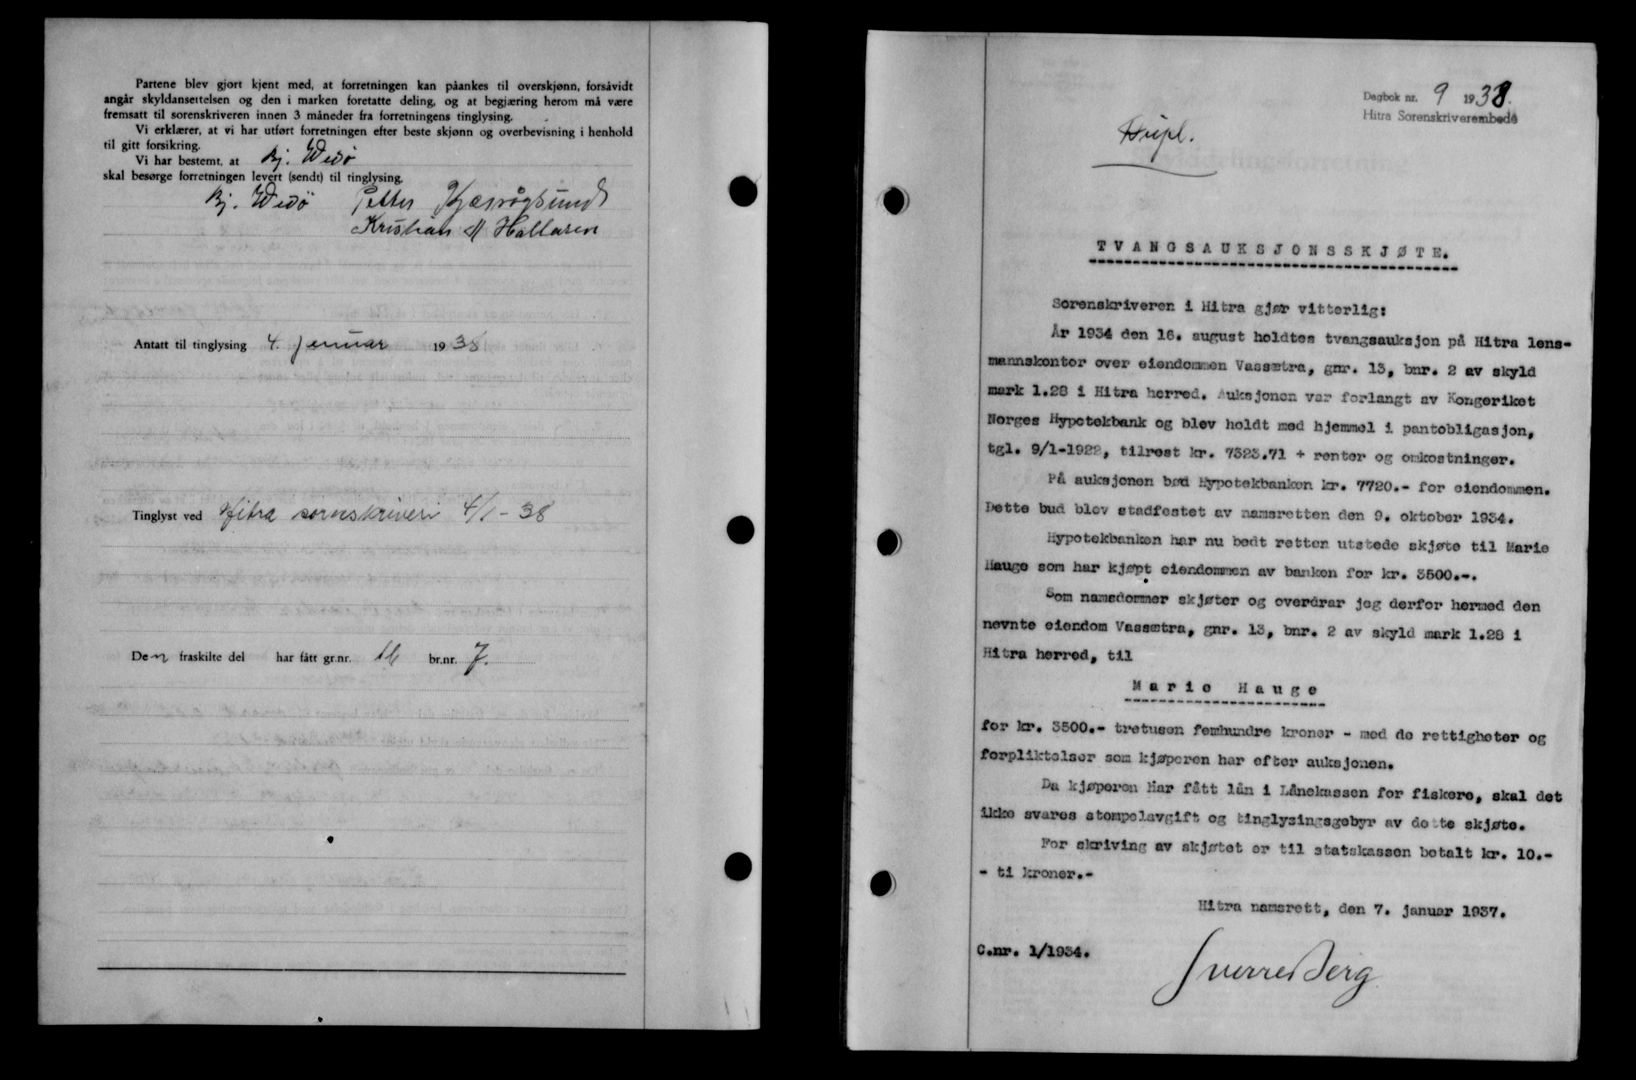 Partene blev gjort kjent med, at forretningen kan påankes til overskjønn, forsåvidt
angår skyldansettelsen og den i marken foretatte deling, og at begjæring herom må være
fremsatt til sorenskriveren innen 3 måneder fra forretningens tinglysing.
Vi erklærer, at vi har utført forretningen efter beste skjønn og overbevisning i henhold
til gitt forsikring.
Vi har bestemt, at Bj. Wedø
skal besørge forretningen levert (sendt) til tinglysing.
Bj. Wedø Petter
Kristian M Hallaren
Antatt til tinglysing 4. januar 1938
Tinglyst ved Hitra sorenskriveri 4/1 - 38
Den fraskilte del har fått gr.nr. br.nr. 7.
Dagbok nr. 9 1938.
Hitra Sorenskriverembede
Dupl.
TVANGSAUKSJONSSKJØTE.
Sorenskriveren i Hitra gjør vitterlig:
År 1934 den 16. august holdtes tvangsauksjon på Hitra lens-
mannskontor over eiendommen Vassætra, gnr. 13, bnr. 2 av skyld
mark 1.28 i Hitra herred. Auksjonen var forlangt av Kongeriket
Norges Hypotekbank og blev holdt med hjemmel i pantobligasjon,
tgl. 9/1-1922, tilrest kr. 7323.71 + renter og omkostninger.
På auksjonen bød Hypotekbanken kr. 7720.- for eiendommen.
Dette bud blev stadfestet av namsretten den 9. oktober 1934.
Hypotekbanken har nu bedt retten utstede skjøte til Marie
Hauge som har kjøpt eiendommen av banken for kr. 3500.-.
Som namsdommer skjøter og overdrar jeg derfor hermed den
nevnte eiendom Vassætra, gnr. 13, bnr. 2 av skyld mark 1.28 i
Hitra herred, til
Marie Hauge
for kr. 3500.- tretusen femhundre kroner - med de rettigheter og
forpliktelser som kjøperen har efter auksjonen.
Da kjøperen har fått lån i Lånekassen for fiskere, skal det
ikke svares stempelavgift og tinglysingsgebyr av dette skjøte.
For skriving av skjøtet er til statskassen betalt kr. 10.-
- ti kroner.-
Hitra namsrett, den 7. januar 1937.
C.nr. 1/1934.
Sverre Berg